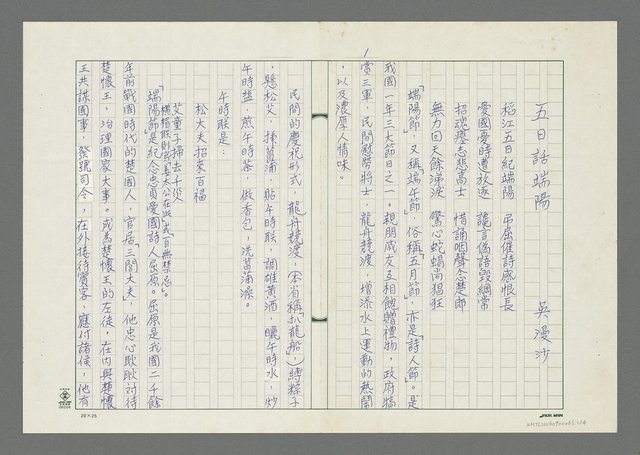 1
五日話端陽
吳漫沙
稻江五日紀端陽 吊屈催詩感恨長
愛國憂時遭放逐 讒言偽語毀綱常
招魂塵志悲高士 惜誦唱聲念楚郎
無力回天餘涕淚 驚心蛇蝎尚猖狂
「端陽節」，又稱「端午節」，俗稱「五月節」，亦是「詩人節」。是
我國一年三大節日之一。親朋戚友互相餽贈禮物，政府犒
賞三軍，民間慰勞將士，龍舟競渡，增添水上運動的熱鬧
，以及濃厚人情味。
民間的慶祝形式，龍舟競渡，（本省稱「扒龍船」）縛粽子
、懸松艾、插菖蒲、貼午時聯、調雄黃酒，曬午時水，炒
午時鹽，煎午時茶，做香包，洗菖蒲澡。
午時聯是
松大夫招來百福
艾童子掃去千災
橫楣聯則寫「姜太公在此」或「百無禁忌」。
「端陽節」是紀念忠貞愛國詩人屈原。屈原是我國二千餘
年前戰國時代的楚國人，官居「三閭大夫」，他忠心耿耿對待
楚懷王，治理國家大事。成為楚懷王的左徒，在內與楚懷
王共謀國事，發號司令，在外接待賓客，應付諸候，他有
20×25